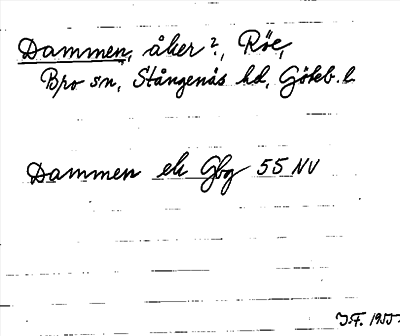 Dammen, åker?, Röe,
Bro sn, Stångenäs hd, Göteb. l.
Dammen ek Gbg 55 NV
J.F. 1955.